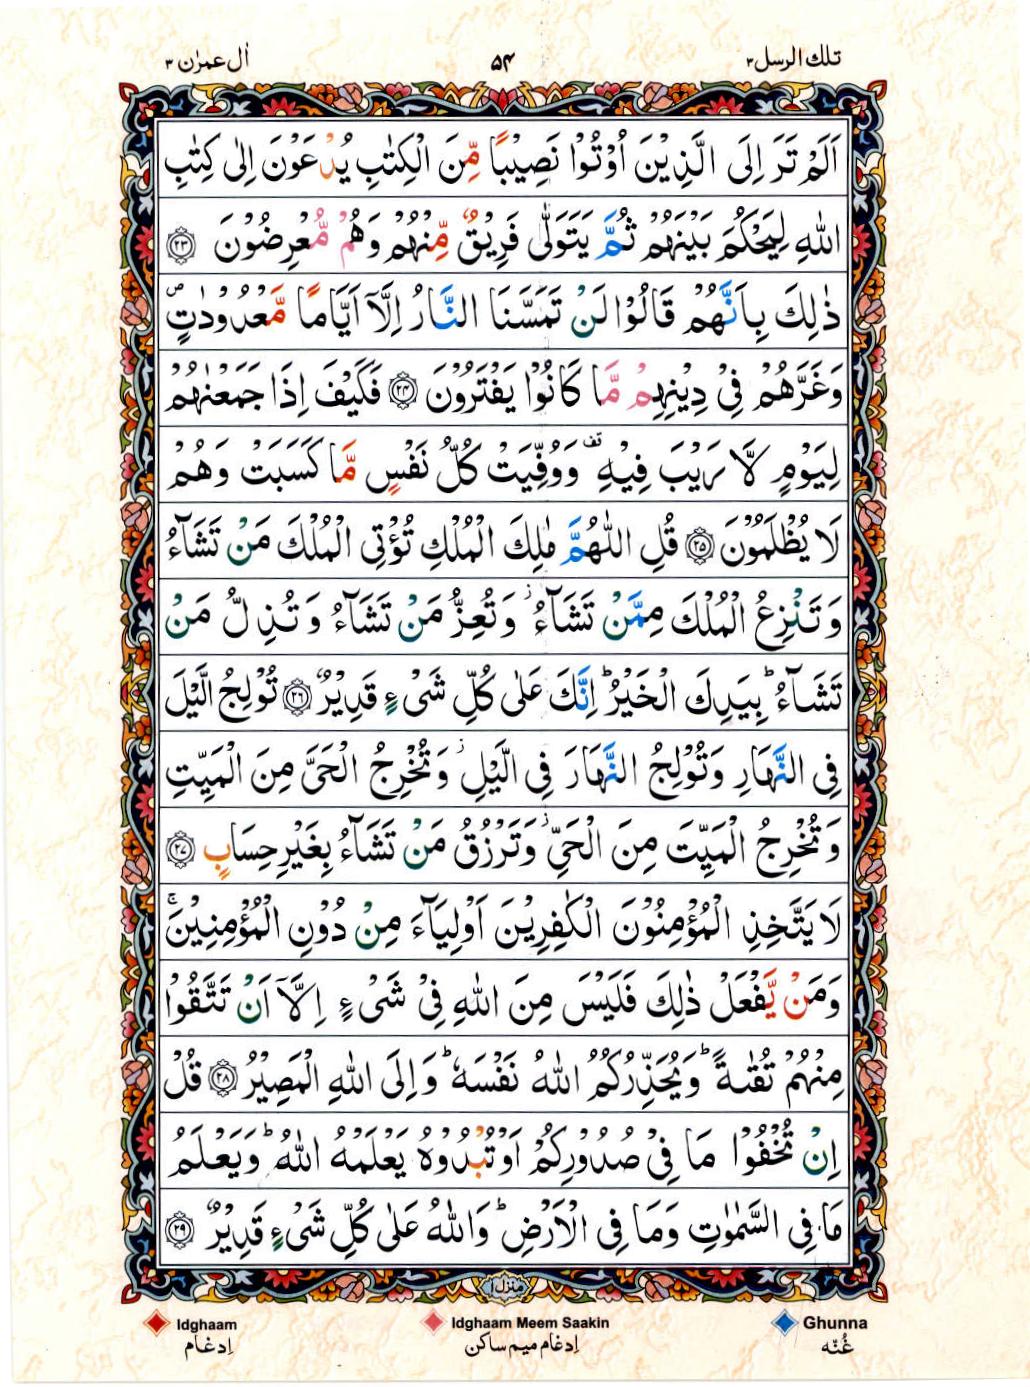 تلك الرسل ٣ ٥٤ اٰل عمرٰن ٣
اَلَمْ تَرَ اِلَى الَّذِيْنَ اُوْتُوْا نَصِيْبًا مِّنَ الْكِتٰبِ يُدْعَوْنَ اِلٰى كِتٰبِ
اللّٰهِ لِيَحْكُمَ بَيْنَهُمْ ثُمَّ يَتَوَلّٰى فَرِيْقٌ مِّنْهُمْ وَهُمْ مُّعْرِضُوْنَ ﴿٢٣﴾
ذٰلِكَ بِاَنَّهُمْ قَالُوْا لَنْ تَمَسَّنَا النَّارُ اِلَّاۤ اَيَّامًا مَّعْدُوْدٰتٍ ۪
وَغَرَّهُمْ فِيْ دِيْنِهِمْ مَّا كَانُوْا يَفْتَرُوْنَ ﴿٢٤﴾ فَكَيْفَ اِذَا جَمَعْنٰهُمْ
لِيَوْمٍ لَّا رَيْبَ فِيْهِ قف وَوُفِّيَتْ كُلُّ نَفْسٍ مَّا كَسَبَتْ وَهُمْ
لَا يُظْلَمُوْنَ ﴿٢٥﴾ قُلِ اللّٰهُمَّ مٰلِكَ الْمُلْكِ تُؤْتِى الْمُلْكَ مَنْ تَشَآءُ
وَتَنْزِعُ الْمُلْكَ مِمَّنْ تَشَآءُ ز وَتُعِزُّ مَنْ تَشَآءُ وَتُذِلُّ مَنْ
تَشَآءُ ؕ بِيَدِكَ الْخَيْرُ ؕ اِنَّكَ عَلٰى كُلِّ شَىْءٍ قَدِيْرٌ ﴿٢٦﴾ تُوْلِجُ الَّيْلَ
فِى النَّهَارِ وَتُوْلِجُ النَّهَارَ فِى الَّيْلِ ز وَتُخْرِجُ الْحَىَّ مِنَ الْمَيِّتِ
وَتُخْرِجُ الْمَيِّتَ مِنَ الْحَىِّ ز وَتَرْزُقُ مَنْ تَشَآءُ بِغَيْرِ حِسَابٍ ﴿٢٧﴾
لَا يَتَّخِذِ الْمُؤْمِنُوْنَ الْكٰفِرِيْنَ اَوْلِيَآءَ مِنْ دُوْنِ الْمُؤْمِنِيْنَ ۚ
وَمَنْ يَّفْعَلْ ذٰلِكَ فَلَيْسَ مِنَ اللّٰهِ فِيْ شَىْءٍ اِلَّاۤ اَنْ تَتَّقُوْا
مِنْهُمْ تُقٰىةً ؕ وَيُحَذِّرُكُمُ اللّٰهُ نَفْسَهٗ ؕ وَاِلَى اللّٰهِ الْمَصِيْرُ ﴿٢٨﴾ قُلْ
اِنْ تُخْفُوْا مَا فِيْ صُدُوْرِكُمْ اَوْ تُبْدُوْهُ يَعْلَمْهُ اللّٰهُ ؕ وَيَعْلَمُ
مَا فِى السَّمٰوٰتِ وَمَا فِى الْاَرْضِ ؕ وَاللّٰهُ عَلٰى كُلِّ شَىْءٍ قَدِيْرٌ ﴿٢٩﴾
منزل ١
Idghaam Idghaam Meem Saakin Ghunna
اِدغام اِدغام میم ساکن غُنّه